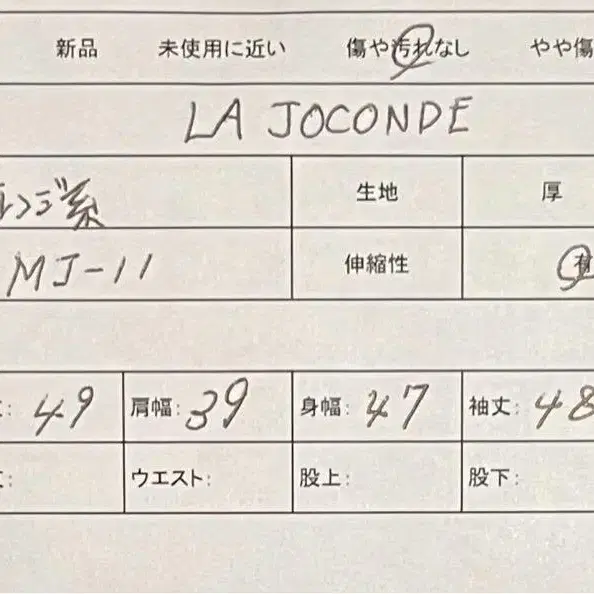 新品 未使用に近い 傷や汚れなし やや傷
LA JOCONDE
ンジ系 生地 厚
MJ-11 伸縮性 有
49 肩幅: 39 身幅: 47 袖丈: 48
ウエスト: 股上: 股下: